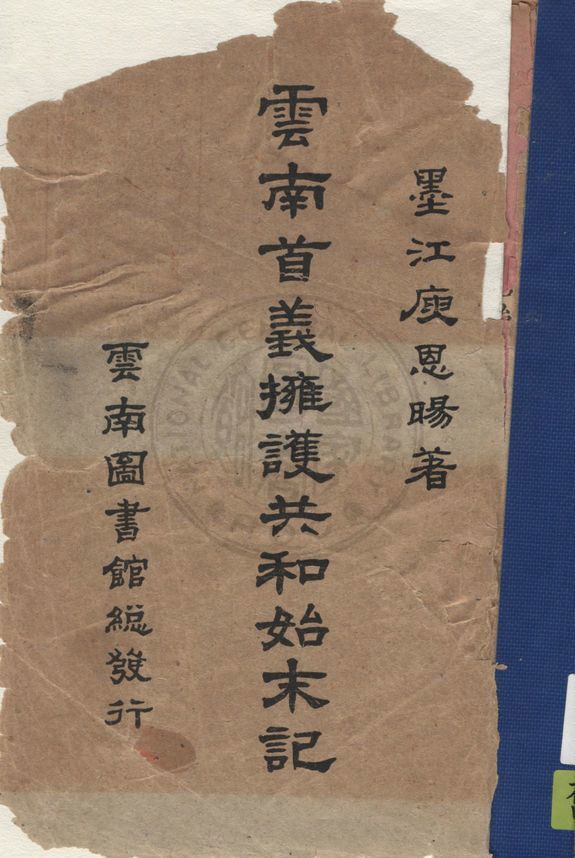 墨江庾恩暘著
雲南首義擁護共和始末記
雲南圖書館総發行